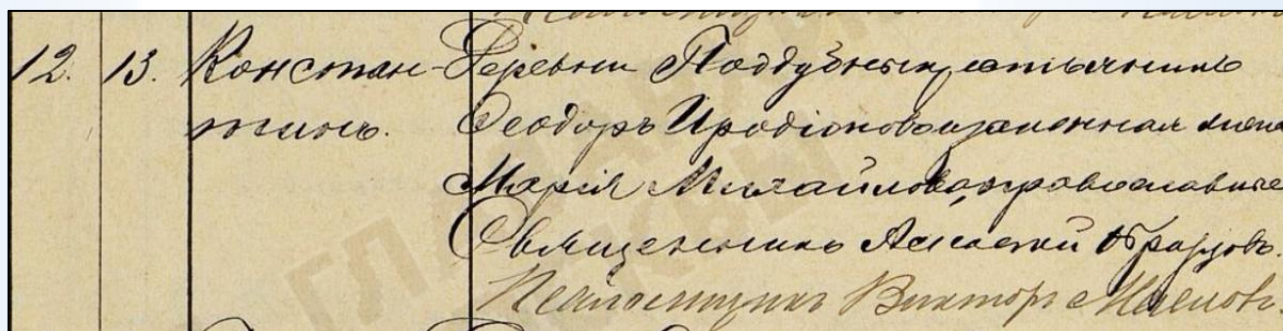 12. 13. Констан- Деревни Поддубных, отъ
тинъ. Ѳеодоръ Иродіоновъ и законная жена
Марія Михайлова, православные
Священникъ Алексѣй Образцовъ.
Псаломщикъ Викторъ